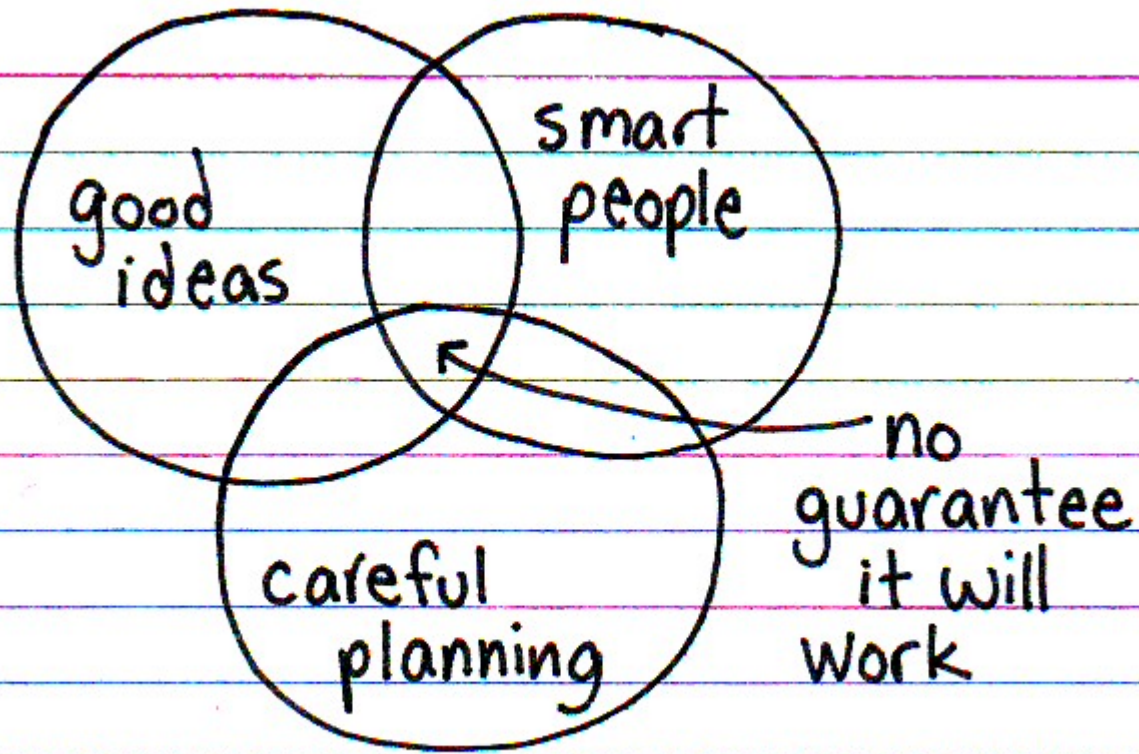 good
ideas
smart
people
careful
planning
no
guarantee
it will
work